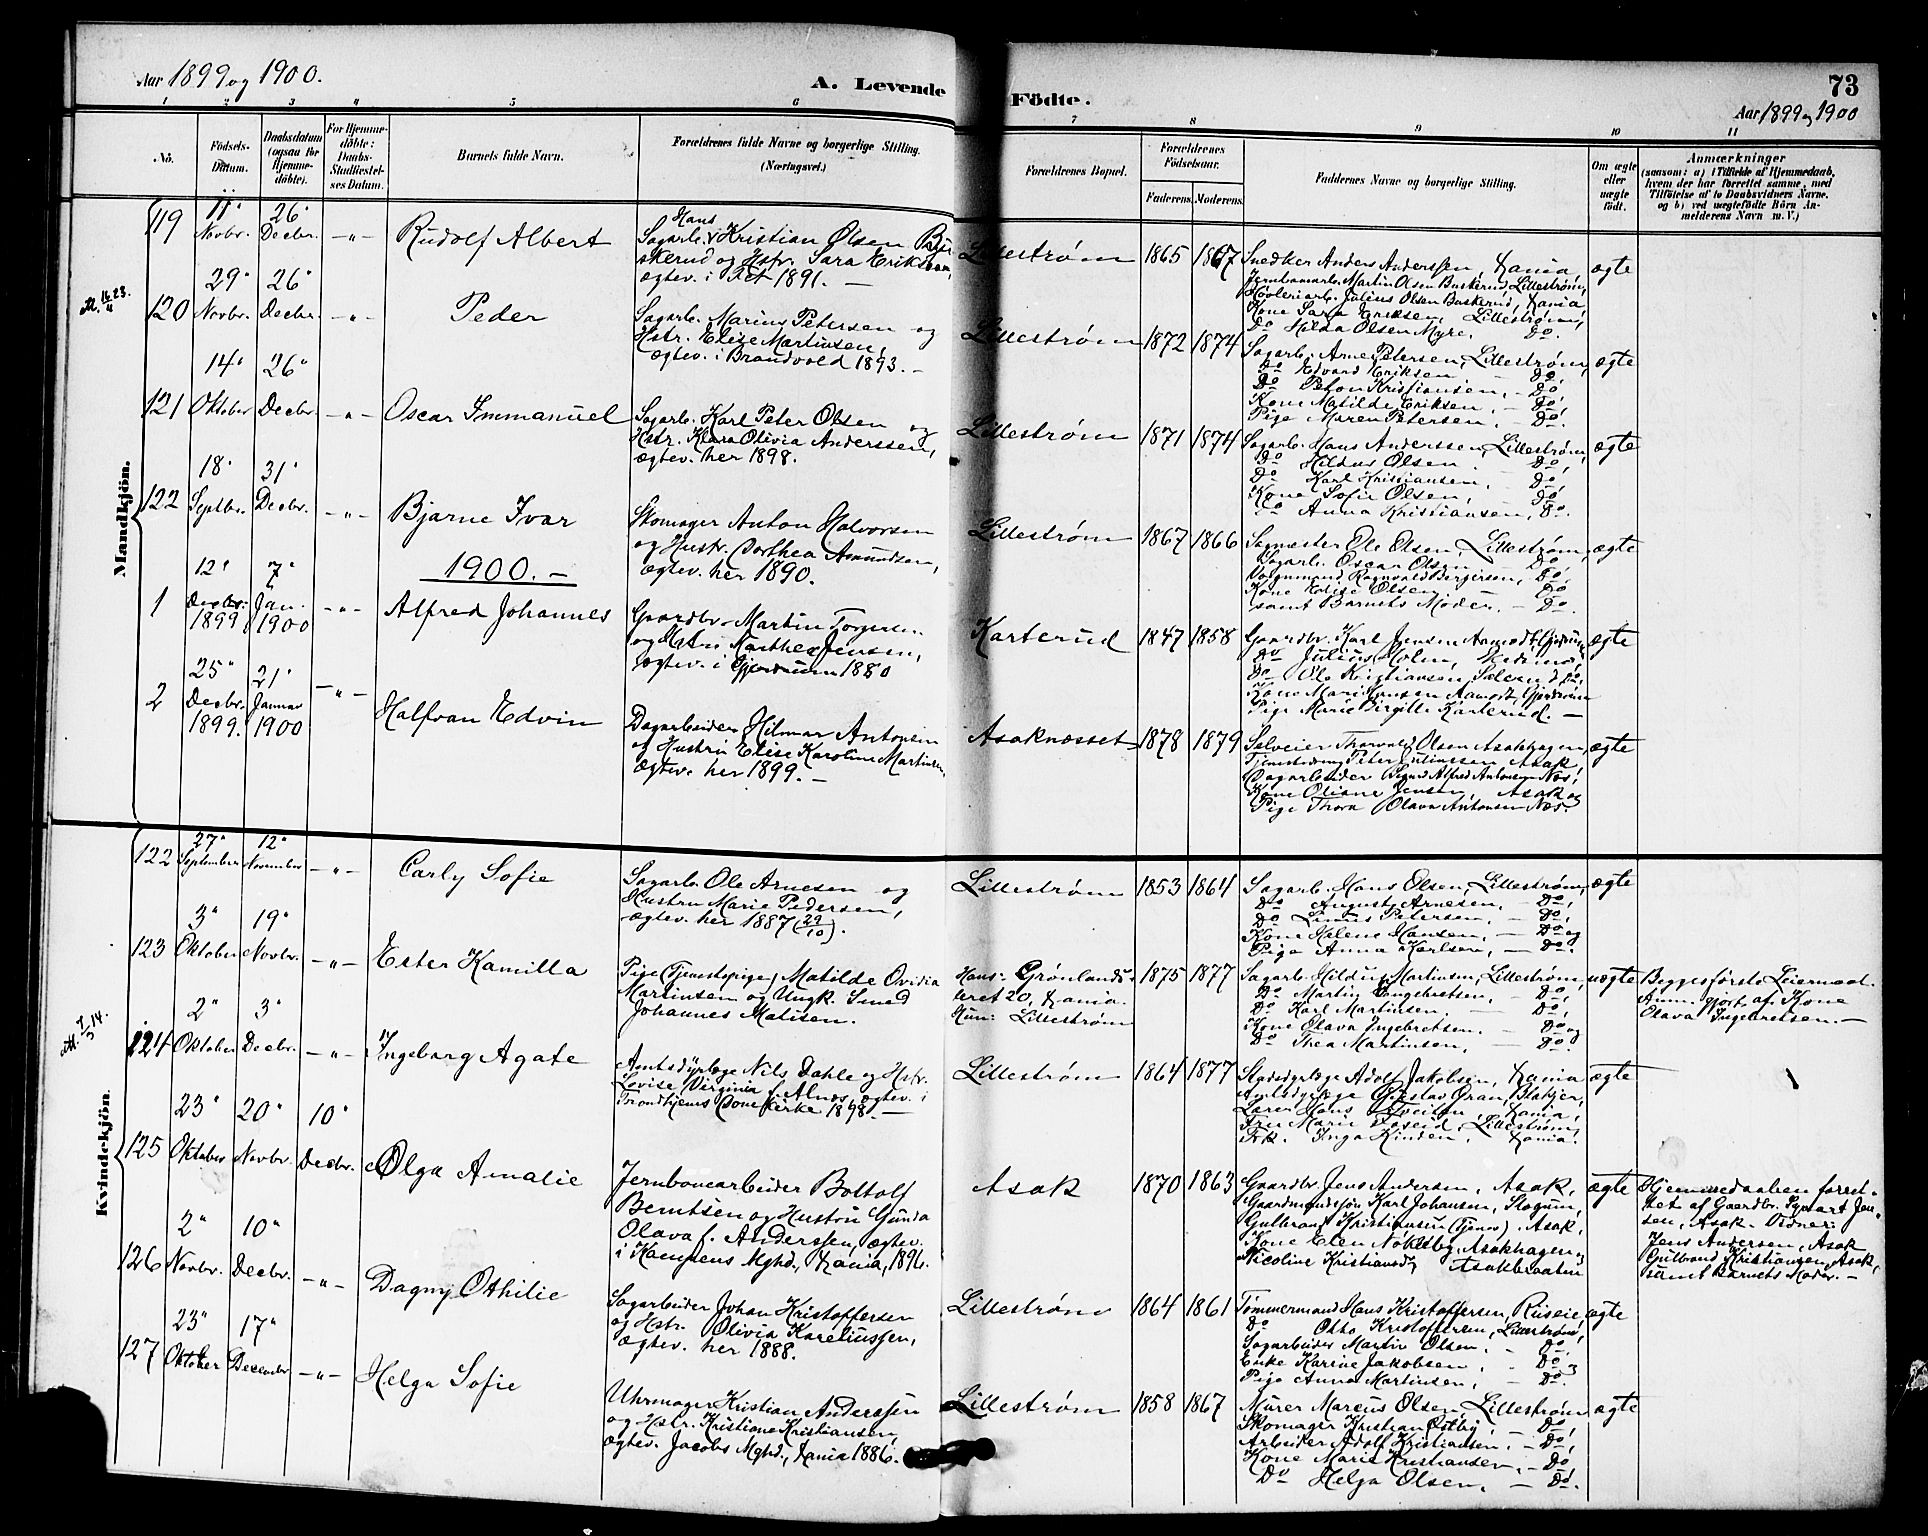 Aar 1899 og 1900.
A. Levende Födte.
73
Aar 1899 og 1900
1 2 3 4 5 6 7 8 9 10 11
No.
Födsels-Datum.
Daabsdatum (ogsaa for Hjemme-döbte).
For Hjemme-döbte: Daabs-Stadfæstel-ses Datum.
Barnets fulde Navn.
Forældrenes fulde Navne og borgerlige Stilling.
(Næringsvei.)
Forældrenes Bopæl.
Forældrenes Fødselsaar.
Faderens. Moderens.
Faddernes Navne og borgerlige Stilling.
Om ægte eller uægte født.
Anmærkninger
(saasom: a) i Tilfælde af Hjemmedaab,
hvem der har forrettet samme, med
Tilföielse af to Daabsvidners Navne.
og b) ved uægtefödte Börn An-
melderens Navn m. V.)
Mandkjön.
119 11' Novbr. 26' Decbr. -"- Rudolf Albert
Hans
Sagarb. Kristian Olsen Bu-
skerud og Hstr. Sara Eriksen,
ægtev. i Fet 1891. —
Lillestrøm 1865 1867
Snedker Anders Anderssen, Kania,
Jernbanearb. Martin Olsen Buskerud, Lillestrøm,
Høvleriarb. Julius Olsen Buskerud, Kania
Kone Sara Eriksen, Lillestrøm,
Do Hilda Olsen Myre, Do.
ægte
120 29' Novbr. 26' Decbr. -"- Peder
Sagarb. Marius Petersen og
Hstr. Elise Martinsen,
ægtev. i Brandvold 1893. —
Lillestrøm 1872 1874
Sagarb. Arne Petersen, Lillestrøm,
Do Edvard Eriksen — Do,
Do Peton Kristiansen, — Do,
Kone Matilde Eriksen, — Do,
Pige Maren Petersen. — Do.
ægte
121 14' Oktober 26' Decbr. -"- Oscar Immanuel
Sagarb. Karl Peter Olsen og
Hstr. Klara Olivia Anderssen,
ægtev. her 1898.
Lillestrøm 1871 1874
Sagarb. Hans Anderssen, Lillestrøm,
Do Hildus Olsen — Do,
Do Karl Kristiansen, — Do,
Kone Sofie Olsen, — Do,
Do Anna Kristiansen, Do.
ægte
122 18' Septbr. 31' Decbr. -"- Bjarne Ivar
Skomager Anton Halvorsen
og Hustr. Dorthea Amundsen,
ægtev. her 1890.
Lillestrøm 1867 1866
Sagmester Ole Olsen, Lillestrøm,
Sagarb. Oscar Olsen — Do,
Vognmand Ragnvald Bergersen, Do,
Kone Elise Olsen — Do
samt Barnets Moder. — Do.
ægte
1900. —
1 12' Decbr. 1899 7' Jan. 1900 -"- Alfred Johannes
Gaardbr. Martin Torgersen
og Hstr. Marthe Jensen,
ægtev. i Gjerdrum 1880
Karterud 1847 1858
Gaardbr. Karl Jensen Aamodt, Gjerdrum
Do Julius Holm, Skedsmo,
Do Ole Kristiansen
Kone Mari Hansen Aamodt, Gjerdrum
Pige Marie Birgitte Karterud. —
ægte
2 25' Decbr. 1899. 21' Januar 1900 -"- Halfvan Edvin
Dagarbeider Hilmar Antonsen
og Hustru Elise Karoline Martinsen,
ægtev. her 1899. —
Asaknæsset 1878 1879
Selveier Thorvald Olsen Asakhagen,
Tjenestedreng Peter Julianssen Asak,
Dagarbeider Sigurd Alfred Antonsen Næs,
Kone Oliane Jensen, Asak og
Pige Thora Olava Antonsen Næs.
ægte
Kvindekjön.
122 27' September 12' November -"- Carly Sofie
Sagarb. Ole Arnesen og
Hustru Marie Pedersen,
ægtev. her 1887 (29/10).
Lillestrøm 1853 1864
Sagarb. Hans Olsen, Lillestrøm,
Do August Arnesen, — Do,
Do Linius Petersen, — Do,
Kone Helene Hansen, — Do og
Pige Anna Karlsen, — Do.
ægte
123 3' Oktober 19' Novbr. -"- Ester Kamilla
Pige (Tjenestepige) Matilde Ovidia
Martinsen og Ungk. Smed
Johannes Matisen.
Hans: Grønlands-
leret 20, Kania.
Hun: Lillestrøm
1875 1877
Sagarb. Hildus Martinsen, Lillestrøm,
Do Martin Ingebretsen, — Do,
Do Karl Martinsen, — Do,
Kone Olava Ingebretsen. — Do og
Do Thea Martinsen, — Do.
uægte
Begges første Leiermaal.
Anm. gjort af Kone
Olava Ingebretsen. —
124 2' Oktober 3' Decbr. -"- Ingeborg Agate
Amtsdyrlæge Nils Dahle og Hstr.
Lovise Virginia f. Alnæs, ægtev. i
Trondhjems Domkirke 1898. —
Lillestrøm 1864 1877
Stadsdyrlæge Adolf Jakobsen, Kania
Amtsdyrlæge Gustav Gran, Blakjer,
Lærer Hans Tveiten, Kania,
Fru Marie Foseid, Lillestrøm,
Frk. Inga Kinden, Kania.
ægte
125 23' Oktober 20' Novbr. 10' Decbr. Olga Amalie
Jernbanearbeider Bottolf
Berntsen og Hustru Gunda
Olava f. Anderssen, ægtev.
i Kampens Mghd., Kania, 1896.
Asak 1870 1863
Gaardbr. Jens Andersen, Asak,
Gaardmandssøn Karl Johansen, Skogum,
Gulbrand Kristiansen (Tjener), Asak,
Kone Elen Nökleby, Asakhagen
Nicoline Kristiansdr, Asakbraaten
ægte
Hjemmedaaben forret-
tet af Gaardbr. Syvart Jen-
sen, Asak. Vidner:
Jens Andersen, Asak
Gulbrand Kristiansen, Asak,
samt Barnets Moder. —
126 2' Novbr. 10' Decbr. -"- Dagny Othilie
Sagarbeider Johan Kristoffersen
og Hstr. Olivia Kareliussen,
ægtev. her 1888.
Lillestrøm 1864 1861
Tømmermand Hans Kristoffersen, Riiseie
Do Otto Kristoffersen, Lillestrøm,
Sagarbeider Martin Olsen, — Do,
Enke Karine Jakobsen, — Do og
Pige Anna Martinsen, — Do.
ægte
127 23' Oktober 17' December -"- Helga Sofie
Uhrmager Kristian Anderssen
og Hstr. Kristiane Kristiansen,
ægtev. Jacobs Mghd., Kania 1886.
Lillestrøm 1858 1867
Murer Marcus Olsen, Lillestrøm
Skomager Kristian Østby, — Do,
Arbeider Adolf Kristiansen, — Do,
Kone Marie Kristiansen, — Do
Do Helga Olsen, — Do.
ægte